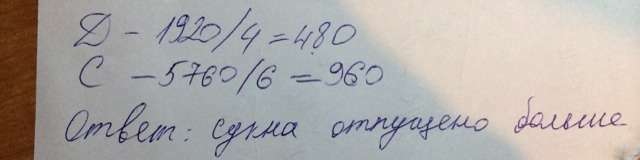 Д - 1920/4=480
С - 5760/6=960
Ответ: сукна отпущено больше